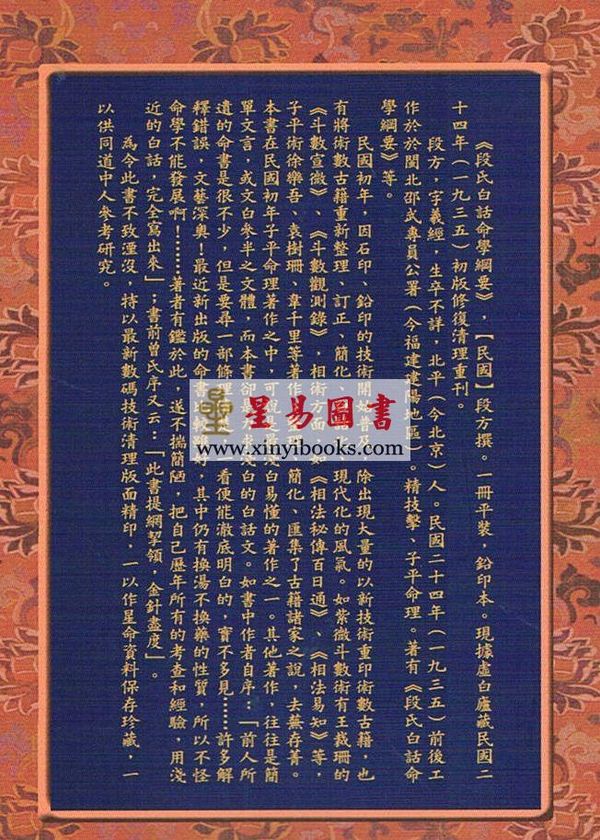 《段氏白話命學綱要》,【民國】段方撰。一冊平裝,鉛印本。現據虛白廬藏民國二
十四年(一九三五)初版修復清理重刊。
段方,字羲經,生卒不詳,北平(今北京)人。民國二十四年(一九三五)前後工
作於閩北邵武專員公署(今福建建陽地區)。精技擊、子平命理。著有《段氏白話命
學綱要》等。
民國初年,因石印、鉛印的技術開始普及,除出現大量的以新技術重印術數古籍,也
有將術數古籍重新整理、訂正、簡化、現代化的風氣。如紫微斗數術有王裁珊的
《斗數宣微》、《斗數觀測錄》,相術方面,如《相法秘傳百日通》、《相法易知》等,
子平術徐樂吾、袁樹珊、韋千里等著作,簡化、匯集了古籍諸家之說,去蕪存菁。
本書在民國初年子平命理著作之中,可說是最淺白易懂的著作之一。其他著作,往往是簡
單文言,或文白參半之文體,而本書卻淺白的白話文。如書中作者自序:「前人所
遺的命書是很不少,但是要尋一部條理看便能澈底明白的,實不多見……許多解
釋錯誤,文藝深奧!最近新出版的命書比較雖好,其中仍有換湯不換藥的性質,所以不怪
命學不能發展啊!……著者有鑑於此,遂不揣簡陋,把自己歷年所有的考查和經驗,用淺
近的白話,完全寫出來」;書前曾氏序又云:「此書提綱挈領,金針盡度」。
為令此書不致湮沒,特以最新數碼技術清理版面精印,一以作星命資料保存珍藏,一
以供同道中人參考研究。
星易圖書
www.xinyibooks.com